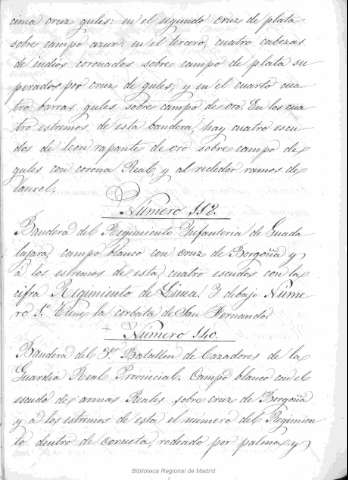 cima cruz gules: en el segundo cruz de plata
sobre campo azur: en el tercero, cuatro cabezas
de indios coronados sobre campo de plata su
perados por cruz de gules; y en el cuarto cua
tro barras gules sobre campo de oro. En los cua
tro extremos de esta bandera, hay cuatro escu
dos de leon rapante de oro sobre campo de
gules con corona Real, y al rededor ramos de
laurel.
Número 112.
Bandera del Regimiento Infanteria de Guada
lajara, campo blanco con cruz de Borgoña y
á los estremos de esta cuatro escudos con la
cifra Regimiento de Linea. Y debajo Núme
ro
la corbata de San Fernando.
Número 140.
Bandera del 3º Batallon de Cazadores de la
Guardia Real Provincial. Campo blanco con el
escudo de armas Reales sobre cruz de Borgoña
y á los estremos de esta el número del Regimien
to dentro de corneta, rodeado por palmas, y
Biblioteca Regional de Madrid